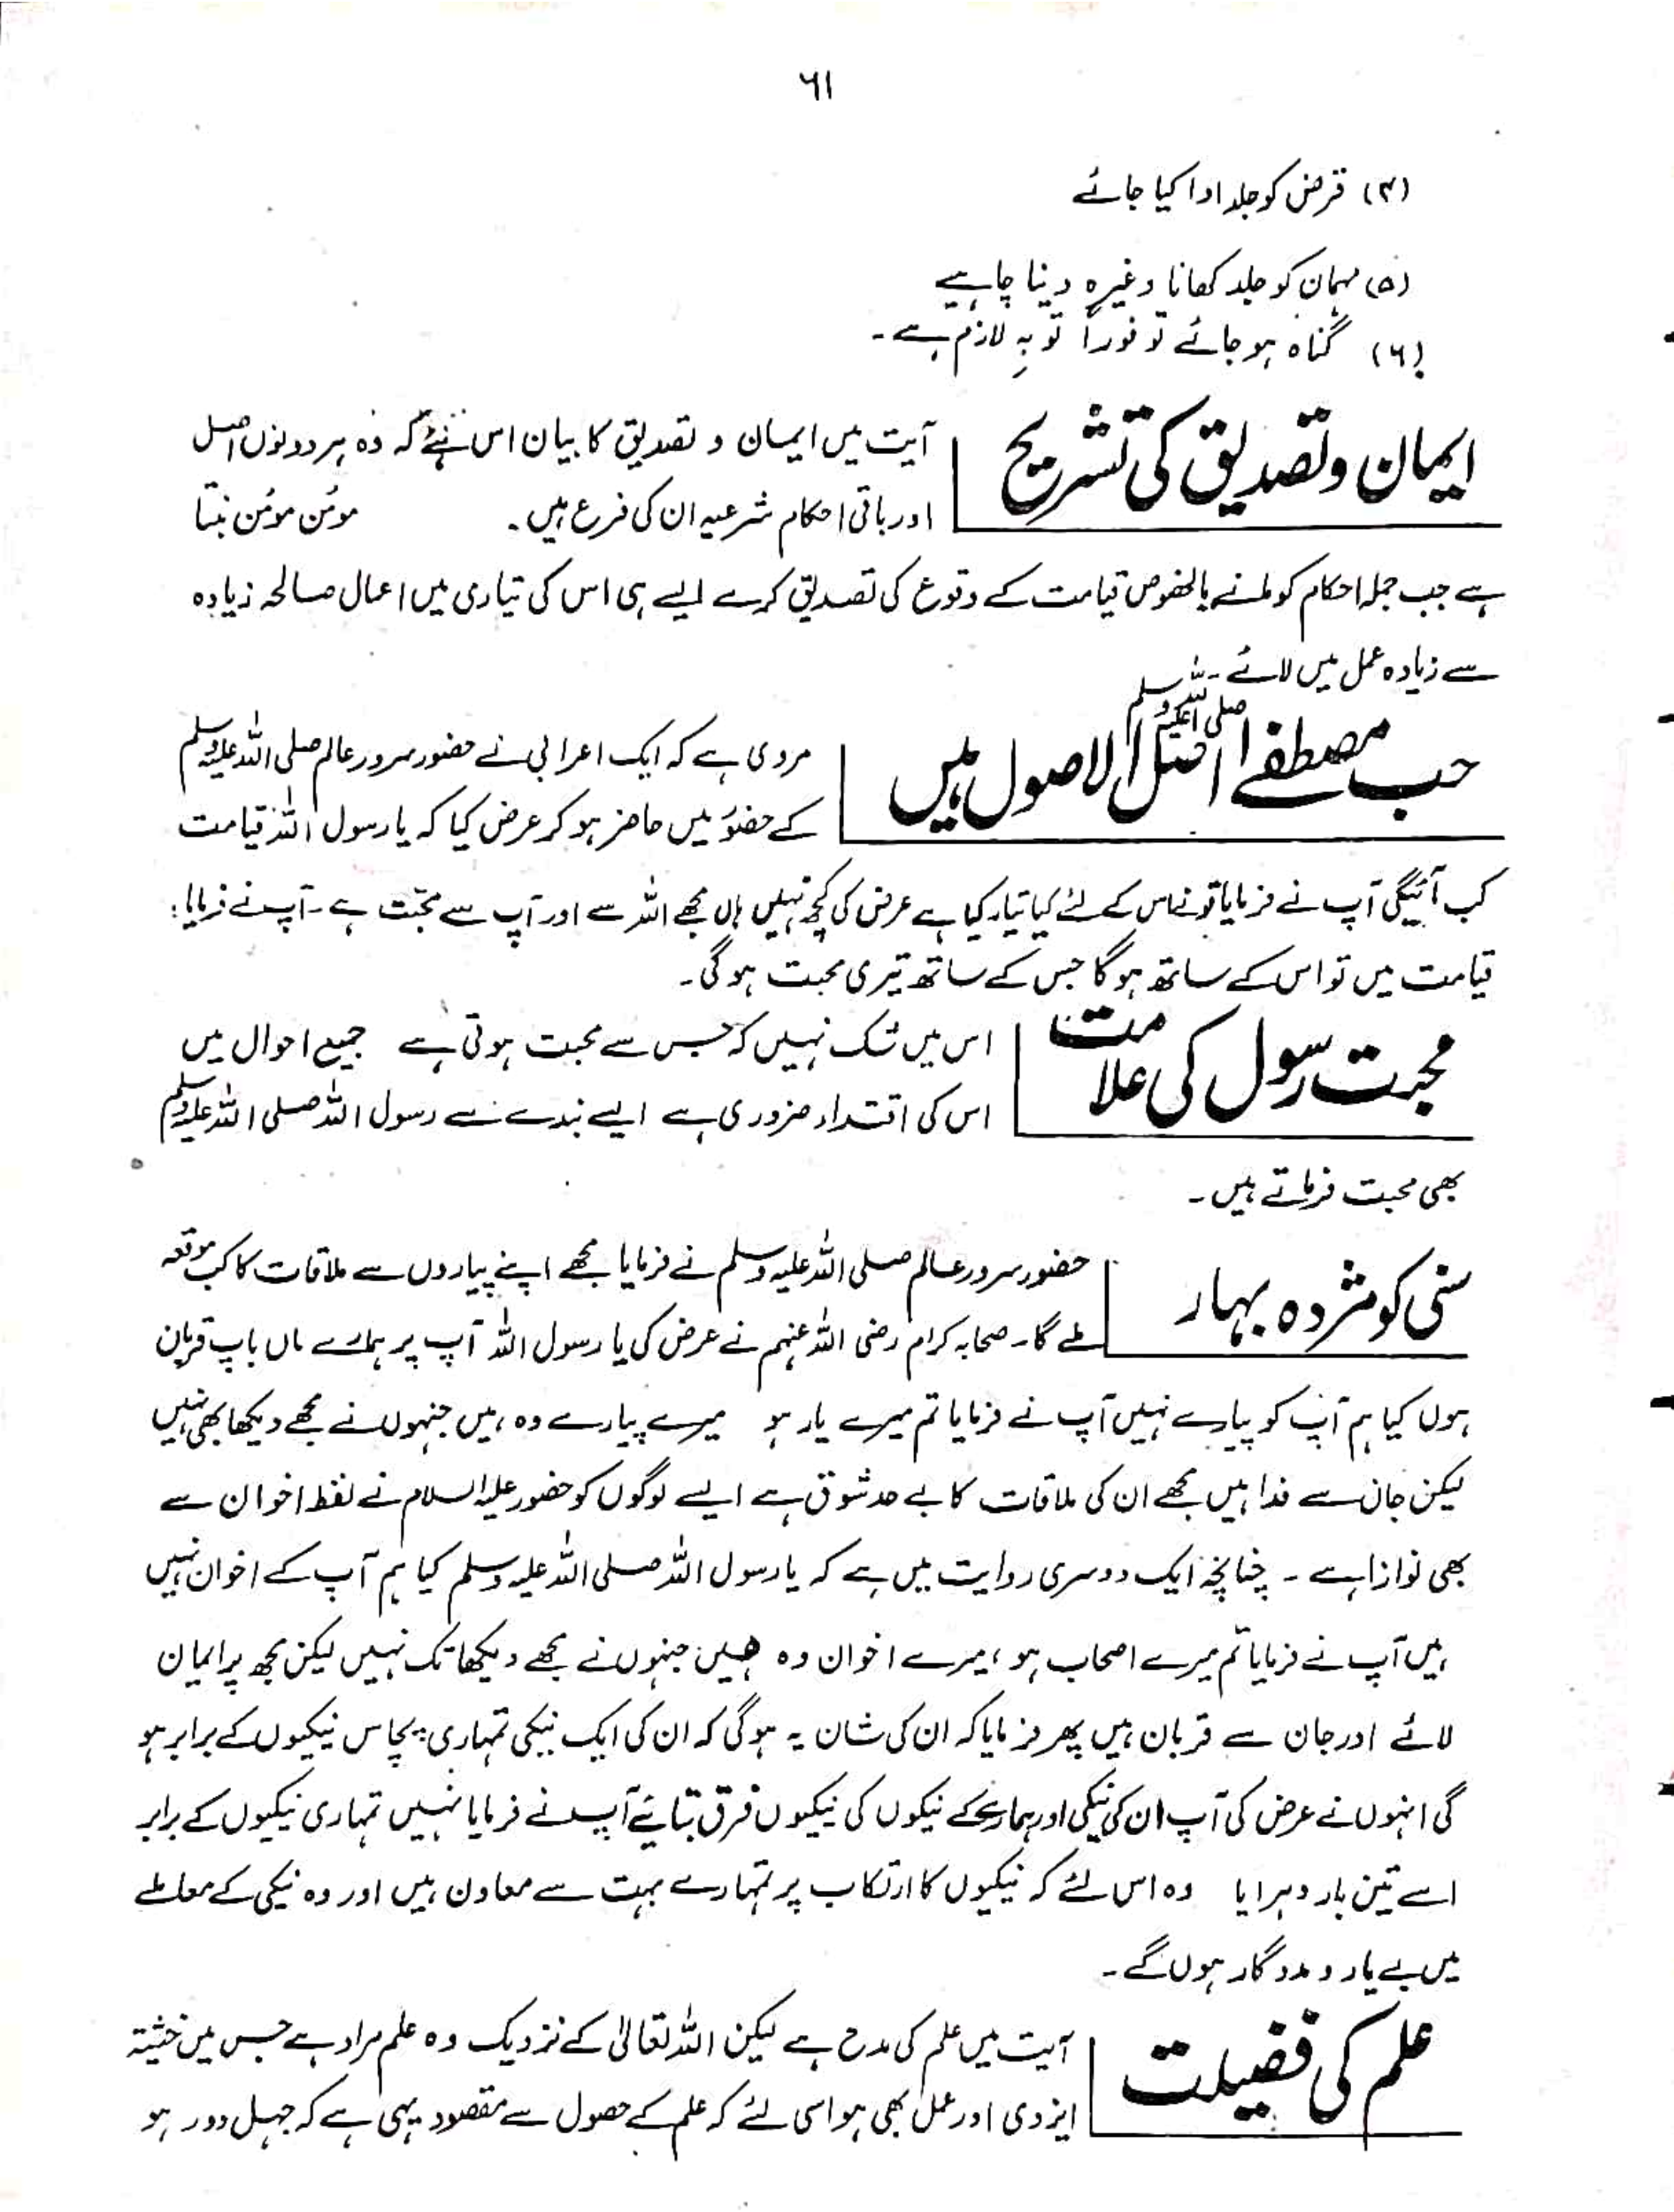 ٦١
(۴) قرض کو جلد ادا کیا جائے
(۵) مہمان کو جلد کھانا وغیرہ دینا چاہیے
(٦) گناہ ہو جائے تو فوراً توبہ لازم ہے۔
ایمان و تصدیق کی تشریح
آیت میں ایمان و تصدیق کا بیان اس لئے ہے کہ وہ ہر دونوں اصل
اور باقی احکام شرعیہ ان کی فرع ہیں۔ مومن مومن بنتا
ہے جب جملہ احکام کو مانے بالخصوص قیامت کے وقوع کی تصدیق کرے ایسے ہی اس کی تیاری میں اعمال صالحہ زیادہ
سے زیادہ عمل میں لائے۔
حب مصطفےٰ صلی اللہ علیہ وسلم اصل الاصول ہیں
مروی ہے کہ ایک اعرابی نے حضور سرور عالم صلی اللہ علیہ وسلم
کے حضور میں حاضر ہو کر عرض کیا کہ یا رسول اللہ قیامت
کب آئیگی آپ نے فرمایا تو نے اس کے لئے کیا تیار کیا ہے عرض کی کچھ نہیں ہاں مجھے اللہ سے اور آپ سے محبّت ہے۔ آپ نے فرمایا:
قیامت میں تو اس کے ساتھ ہوگا جس کے ساتھ تیری محبت ہوگی۔
محبت رسول کی علامت
اس میں شک نہیں کہ جس سے محبت ہوتی ہے جمیع احوال میں
اس کی اقتداء ضروری ہے ایسے بندے سے رسول اللہ صلی اللہ علیہ وسلم
بھی محبت فرماتے ہیں۔
سنی کو مژدہ بہار
حضور سرور عالم صلی اللہ علیہ وسلم نے فرمایا مجھے اپنے پیاروں سے ملاقات کا کب موقعہ
ملے گا۔ صحابہ کرام رضی اللہ عنہم نے عرض کی یا رسول اللہ آپ پر ہمارے ماں باپ قربان
ہوں کیا ہم آپ کو پیارے نہیں آپ نے فرمایا تم میرے یار ہو میرے پیارے وہ ہیں جنہوں نے مجھے دیکھا بھی نہیں
لیکن جان سے فدا ہیں مجھے ان کی ملاقات کا بے حد شوق ہے ایسے لوگوں کو حضور علیہ السلام نے لفظ اخوان سے
بھی نوازا ہے۔ چنانچہ ایک دوسری روایت میں ہے کہ یا رسول اللہ صلی اللہ علیہ وسلم کیا ہم آپ کے اخوان نہیں
ہیں آپ نے فرمایا تم میرے اصحاب ہو، میرے اخوان وہ ہیں جنہوں نے مجھے دیکھا تک نہیں لیکن مجھ پر ایمان
لائے اور جان سے قربان ہیں پھر فرمایا کہ ان کی شان یہ ہوگی کہ ان کی ایک نیکی تمہاری پچاس نیکیوں کے برابر ہو
گی انہوں نے عرض کی آپ ان کی نیکی اور ہمارے کے نیکوں کی نیکیوں فرق بتایئے آپ نے فرمایا نہیں تمہاری نیکیوں کے برابر
اسے تین بار دہرایا وہ اس لئے کہ نیکیوں کا ارتکاب پر تمہارے بہت سے معاون ہیں اور وہ نیکی کے معاملے
میں بے یار و مددگار ہوں گے۔
علم کی فضیلت
آیت میں علم کی مدح ہے لیکن اللہ تعالیٰ کے نزدیک وہ علم مراد ہے جس میں خشیتہ
ایزدی اور عمل بھی ہو اسی لئے کہ علم کے حصول سے مقصود یہی ہے کہ جہل دور ہو